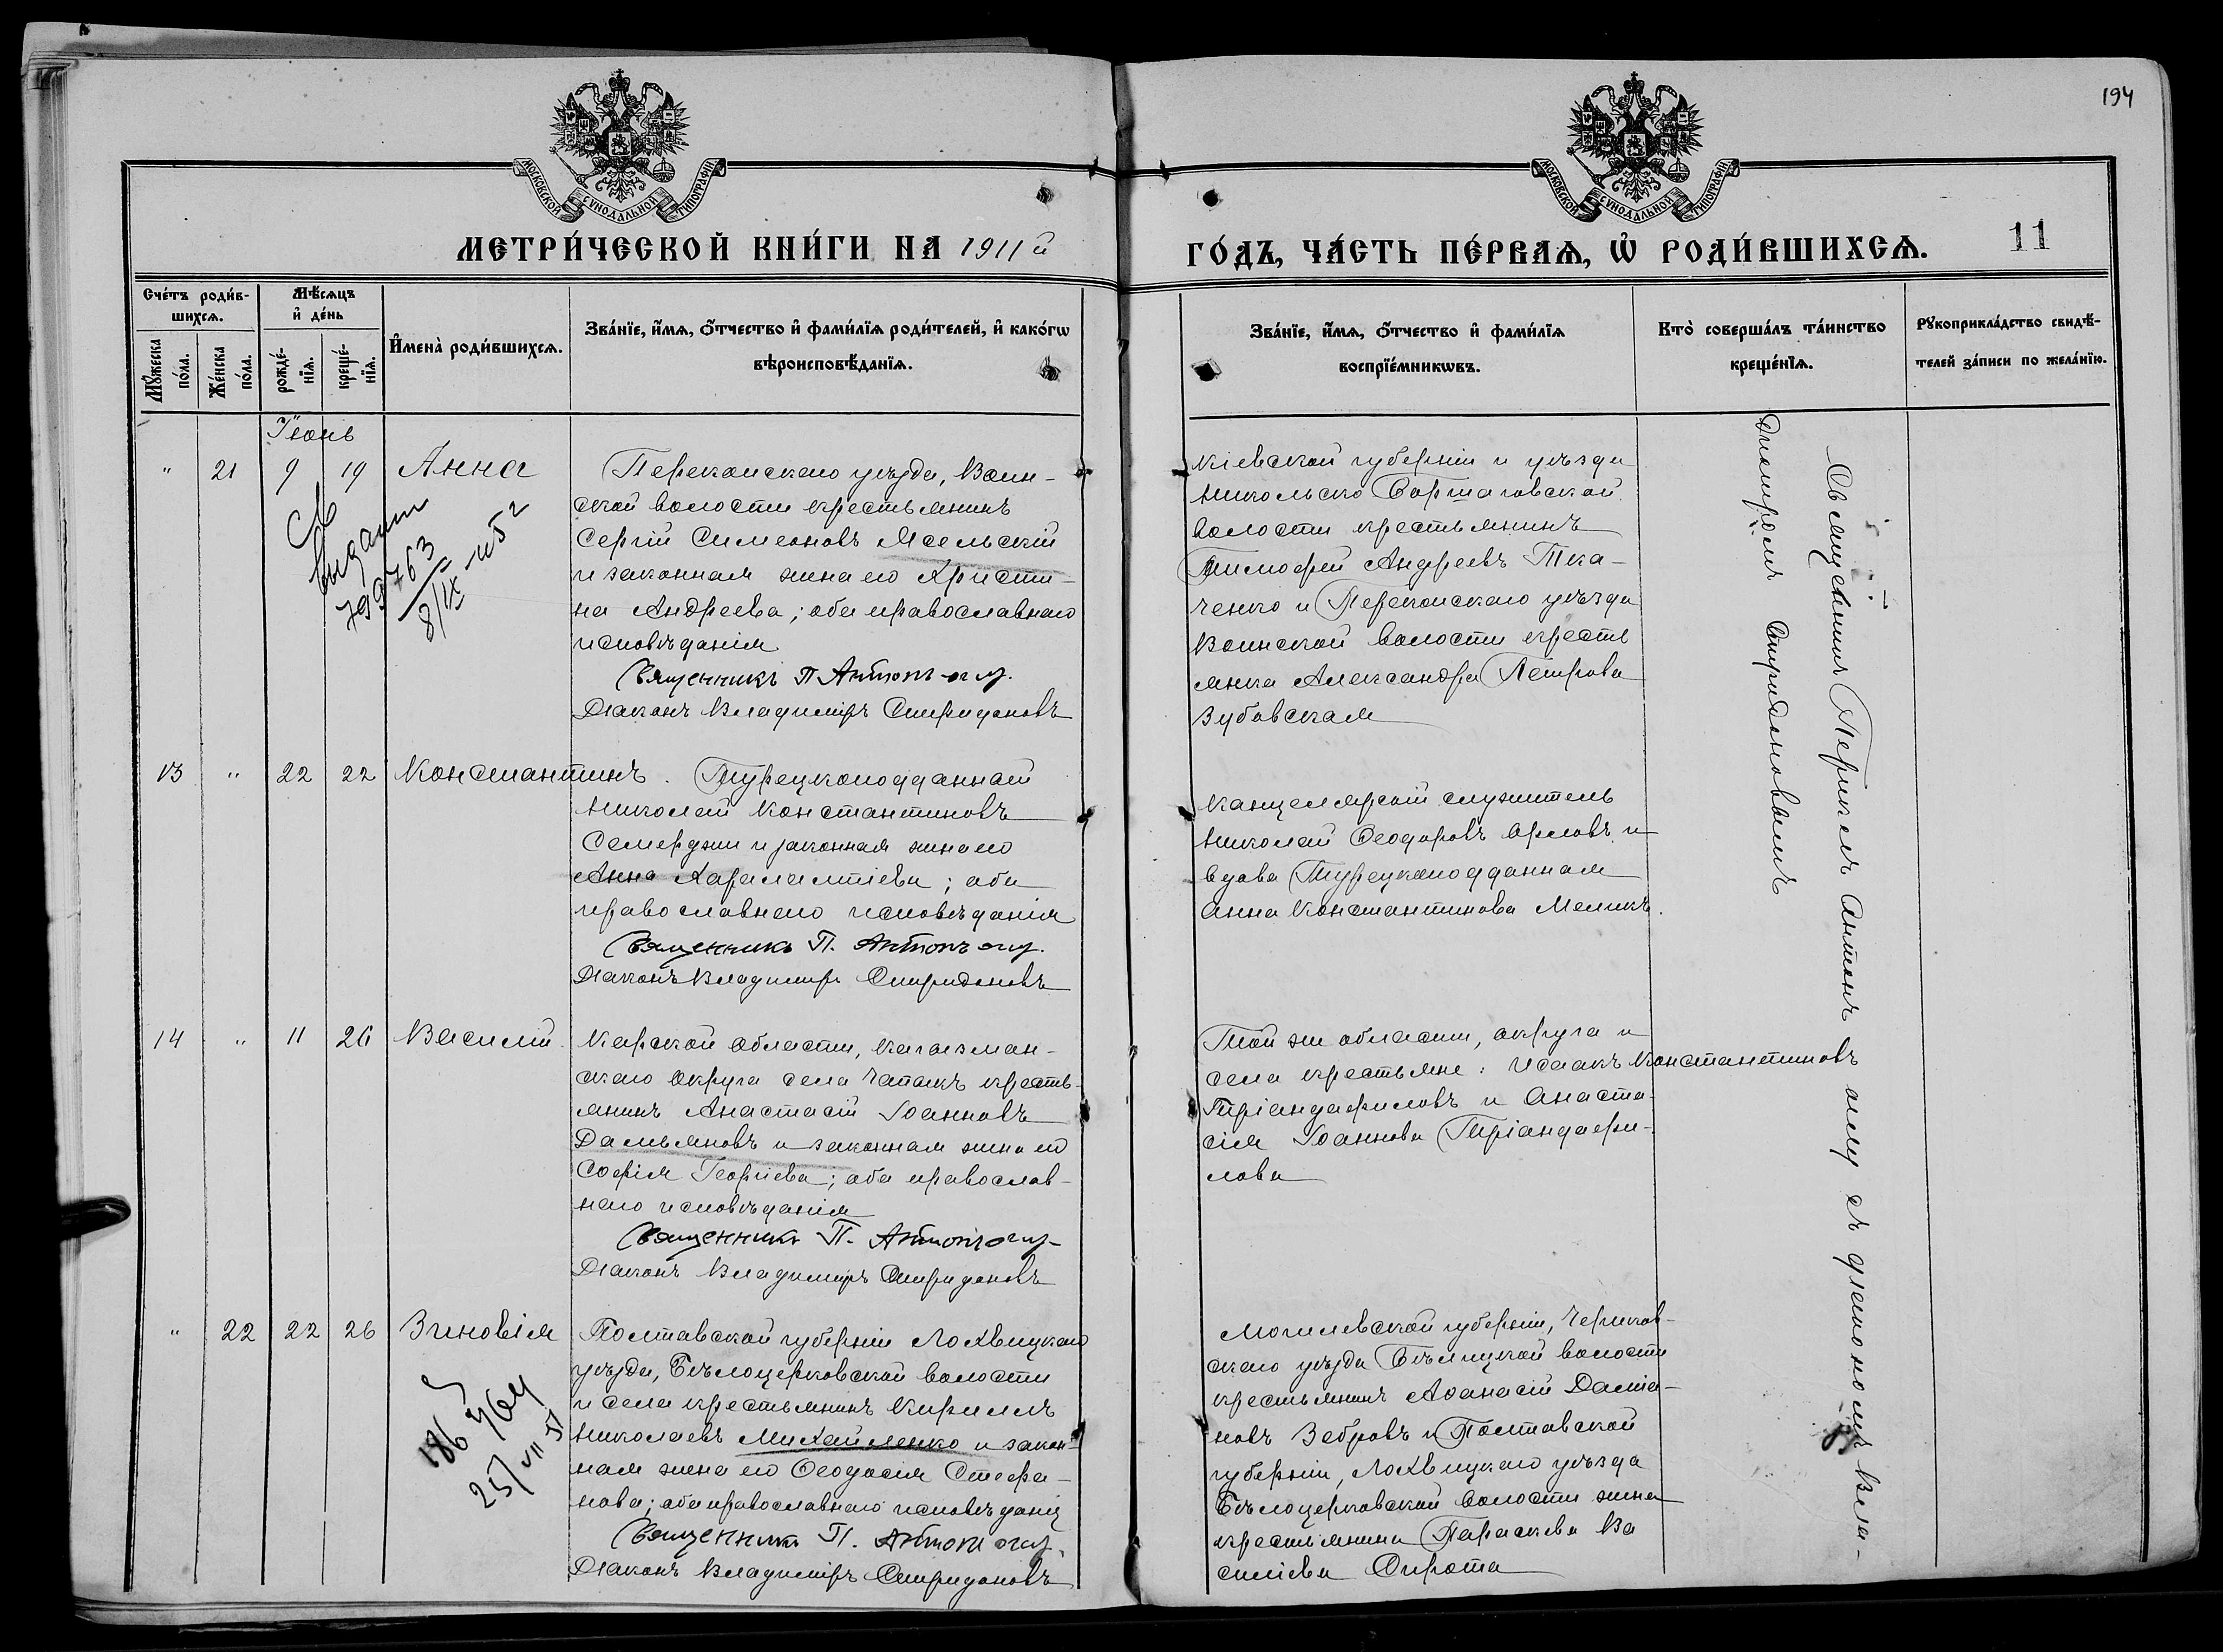 194
МОСКОВСКОЙ СѴНОДАЛЬНОЙ ТИПОГРАФІИ
МОСКОВСКОЙ СѴНОДАЛЬНОЙ ТИПОГРАФІИ
МЕТРИ́ЧЕСКОЙ КНИ́ГИ НА 1911й
ГО́ДЪ, ЧА́СТЬ ПЕ́РВАѦ, Ѽ РОДИ́ВШИХСѦ.
11
Сче́тъ роди́в-
шихсѧ.
Мѣ́сѧцъ
и҆ де́нь
Мꙋ́жеска
по́ла.
Же́нска
по́ла.
рожде́-
нїѧ.
креще́-
нїѧ.
И҆мена̀ роди́вшихсѧ.
Зва́нїе, и҆́мѧ, ѻ҆́тчество и҆ фами́лїѧ роди́телей, и҆ како́гѡ
вѣроисповѣ́данїѧ.
Зва́нїе, и҆́мѧ, ѻ҆́тчество и҆ фами́лїѧ
воспрїе́мникѡвъ.
Кто̀ соверша́лъ та́инство
креще́нїѧ.
Рꙋкоприкла́дство свидѣ́-
телей за́писи по жела́нїю.
Іюнь
" 21 9 19 Анна
Перекопскаго уѣзда, Воин-
ской волости крестьянинъ
Сергій Симеоновъ Ясельскій
и законная жена его Христи-
на Андреева; оба православнаго
исповѣданія
Священникъ П Антоногиу.
Діаконъ Владиміръ Спиридоновъ
выдано
799763
8/IX-52
Кіевской губерніи и уѣзда
Никольско Борщаговской
волости крестьянинъ
Тимофей Андреевъ Тка-
ченко и Перекопскаго уѣзда
Воинской волости кресть
янка Александра Петрова
Зубовская
13 " 22 22 Константинъ.
Турецкоподданный
Николай Константиновъ
Семерджи и законная жена его
Анна Харалампіева; оба
православнаго исповѣданія
Священникъ П. Антоногиу.
Діаконъ Владиміръ Спиридоновъ
Канцелярскій служитель
Николай Ѳеодоровъ Орловъ и
вдова Турецкоподданная
Анна Константинова Меликъ.
14 " 11 26 Василій.
Карской области, Кагызман-
скаго округа села Чапакъ кресть-
янинъ Анастасій Іоанновъ
Дамьяновъ и законная жена его
Софія Георгіева; оба православ-
наго исповѣданія
Священникъ П. Антоногиу
Діаконъ Владиміръ Спиридоновъ
Той же области, округа и
села крестьяне: Исаакъ Константиновъ
Тріандафиловъ и Анаста-
сія Іоаннова Тріандафи-
лова
" 22 22 26 Зиновія
Полтавской губерніи Лохвицкаго
уѣзда, Бѣлоцерковской волости
и села крестьянинъ Кириллъ
Николаевъ Михайленко и закон-
ная жена его Ѳеодосія Стефа-
нова; оба православнаго исповѣданія
Священникъ П. Антоногиу.
Діаконъ Владиміръ Спиридоновъ
25/VII 51
Могилевской губерніи, Чериков-
скаго уѣзда Бѣлицкой волости
крестьянинъ Аѳанасій Даміа-
новъ Зебровъ и Полтавской
губерніи, Лохвицкаго уѣзда
Бѣлоцерковской волости жена
крестьянина Параскева Ва
силіева Сирота
Священникъ Периклъ Антоногиу съ діакономъ Вла-
диміромъ Спиридоновымъ